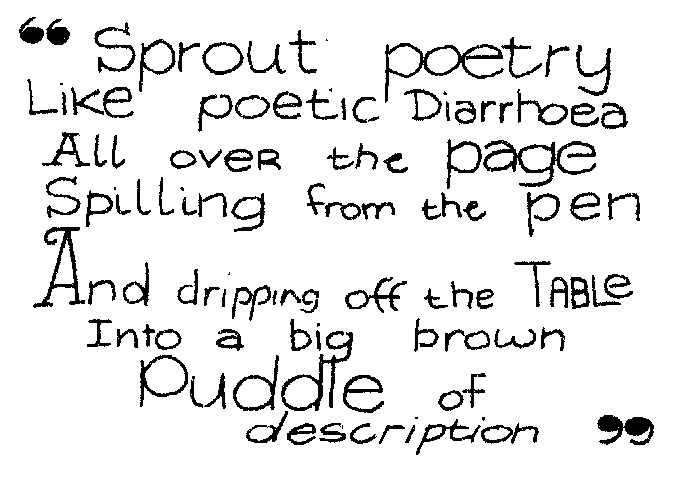 “Sprout poetry
Like poetic Diarrhoea
All over the page
Spilling from the pen
And dripping off the TABLe
Into a big brown
Puddle of
description”